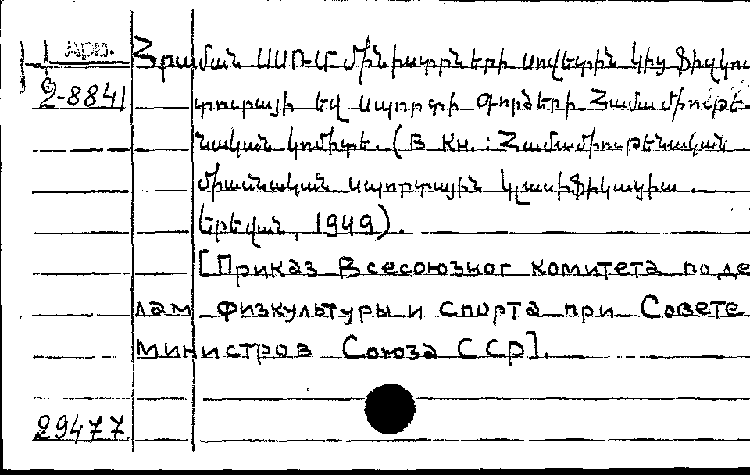 Арм.
Հրաման ՍՍՌՄ Մինիստրների սովետին կից ֆիզկուլ
2-8841
տուրայի եվ սպորտի գործերի Համամիութե
նական կոմիտե. (В кн.: Համամիութենական
միասնական սպորտային կլասիֆիկացիա.
Երեվան, 1949).
[Приказ Всесоюзног комитета по де
лам физкультуры и спорта при Совете
министров Союза ССР].
29477